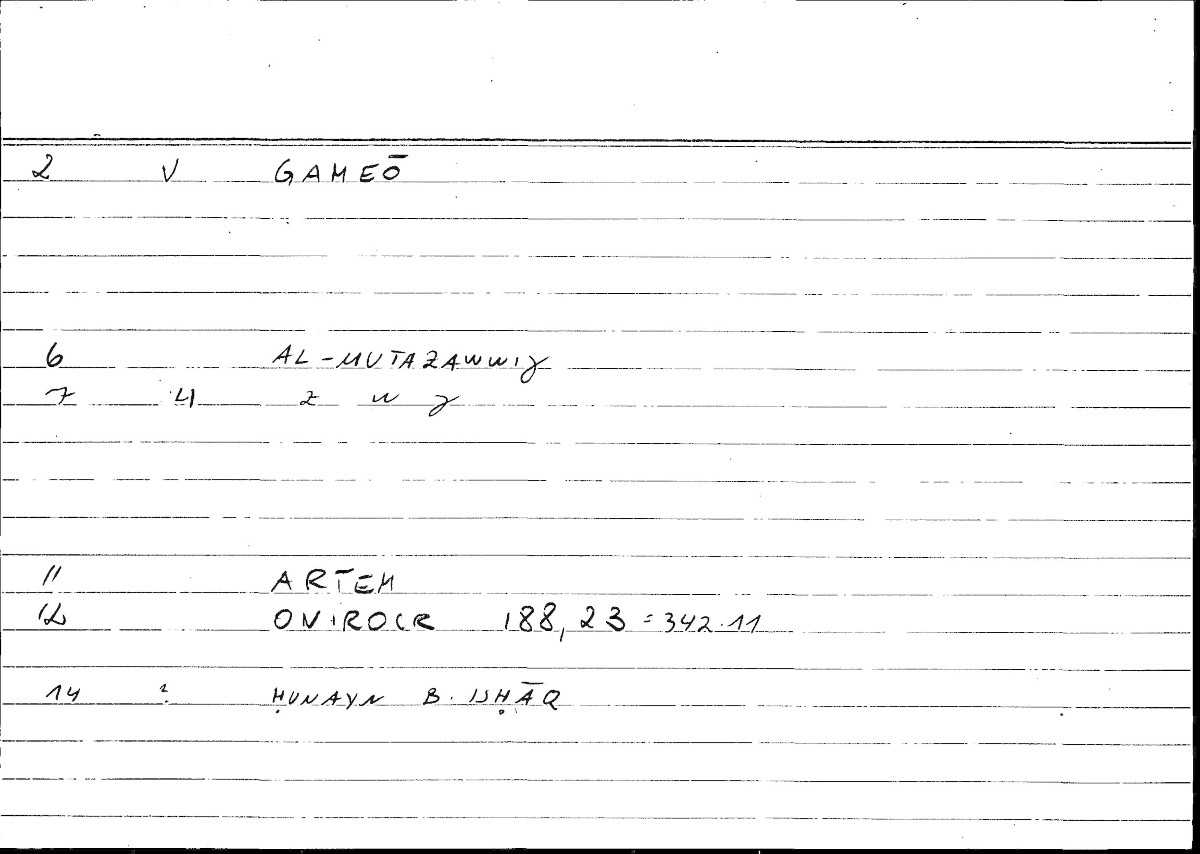 2 V GAMEŌ
6 AL-MUTAZAWWIJ
7 4 z w j
11 ARTEM
12 ONIROCR 188,23 = 342.11
14 ? ḤUNAYN B. ISḤĀQ